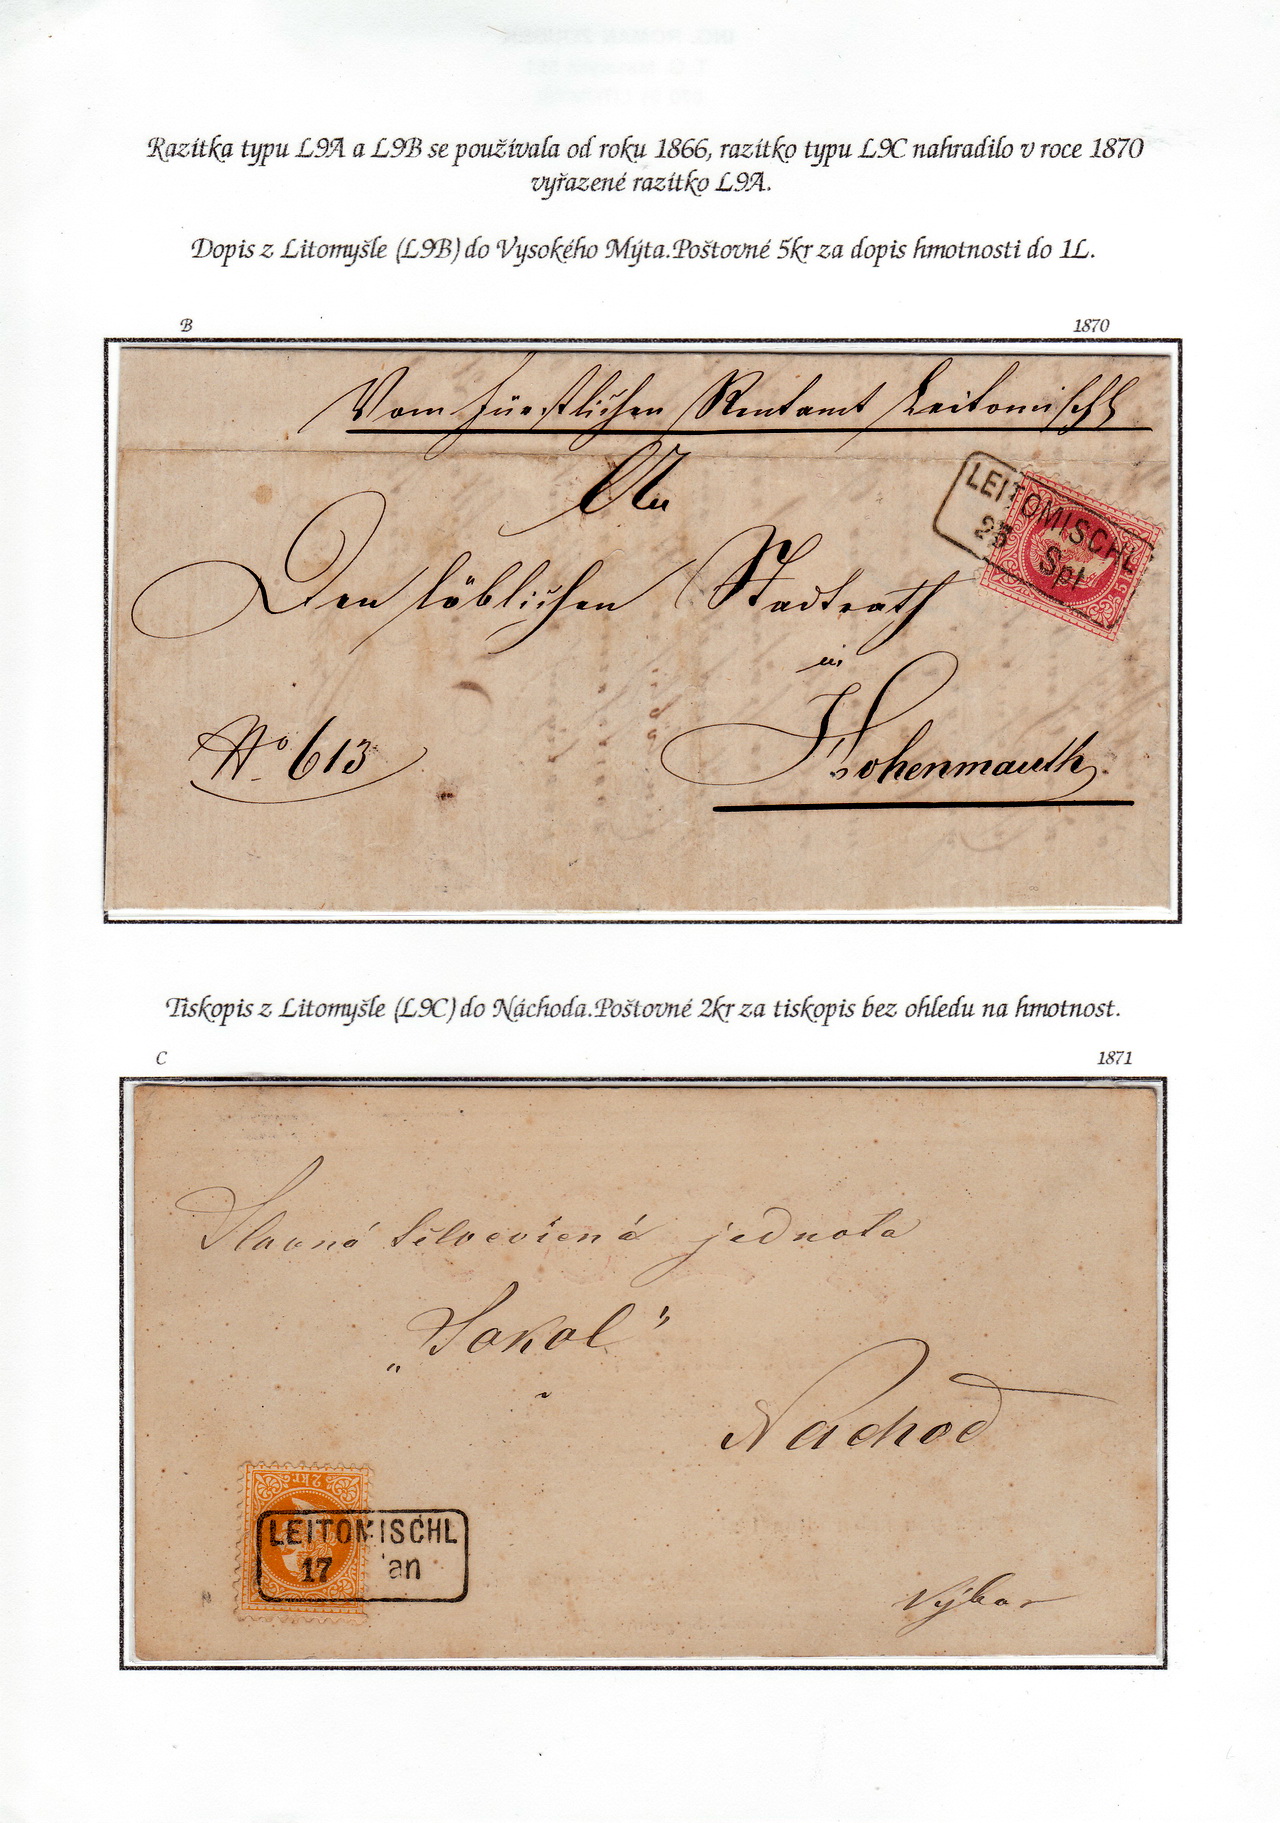 Razítka typu L9A a L9B se používala od roku 1866, razítko typu L9C nahradilo v roce 1870
vyřazené razítko L9A.
Dopis z Litomyšle (L9B) do Vysokého Mýta.Poštovné 5kr za dopis hmotnosti do 1L.
B 1870
Vom fürstlichen Rentamt Leitomischl
An
LEITOMISCHL
25 Spt
Den löblichen Stadtrath
in
No 613
Hohenmauth
Tiskopis z Litomyšle (L9C) do Náchoda.Poštovné 2kr za tiskopis bez ohledu na hmotnost.
C 1871
Slavná tělocvičná jednota
„Sokol"
Náchod
2kr
LEITOMISCHL
17 an
Výbor